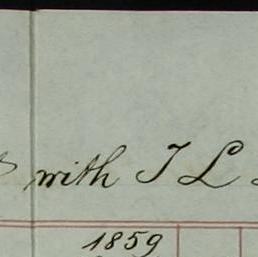 with T L
1859